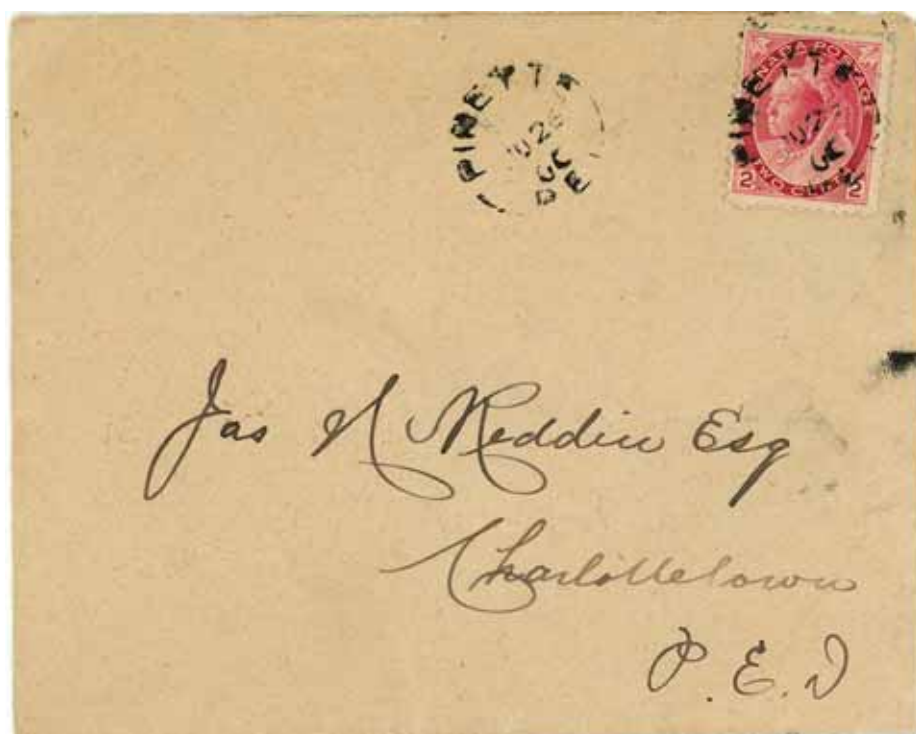 PINETTE
CANADA POSTAGE
PINETTE
2 TWO CENTS 2
Jas H Reddin Esq
Charlottetown
P.E.I